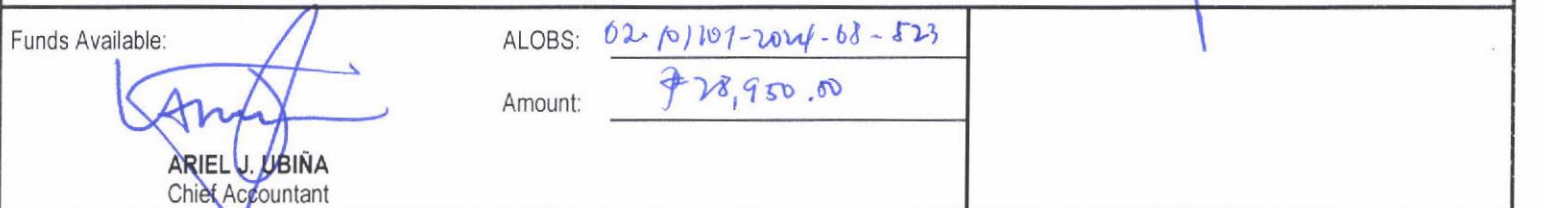 Funds Available:
ALOBS: 02-101101-2024-08-523
Amount: ₱28,950.00
ARIEL J. UBIÑA
Chief Accountant